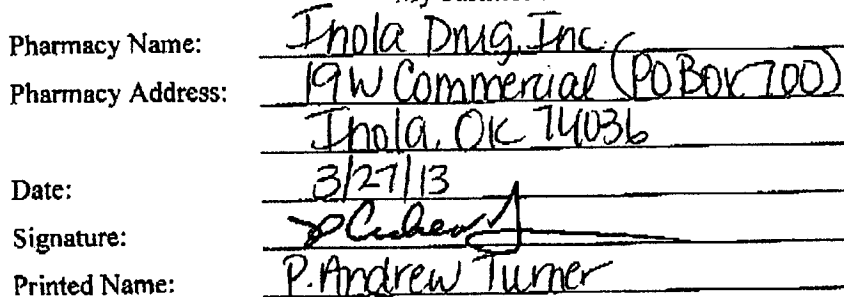 Pharmacy Name: Inola Drug, Inc.
Pharmacy Address: 19 W Commercial (PO Box 700)
Inola, OK 74036
Date: 3/27/13
Signature:
Printed Name: P. Andrew Turner